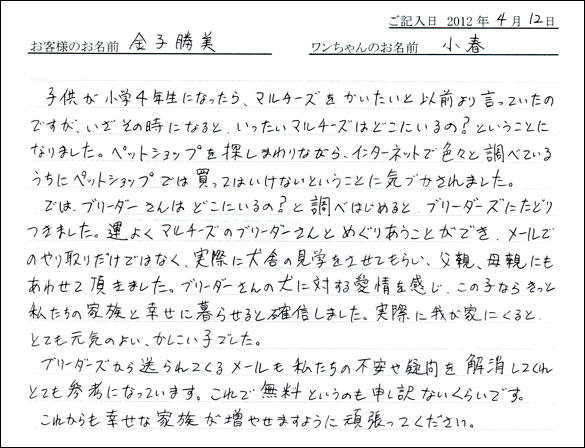 ご記入日 2012年 4月 12日
お客様のお名前 金子勝美 ワンちゃんのお名前 小春
子供が小学4年生になったら、マルチーズをかいたいと以前より言っていたの
ですが、いざその時になると、いったいマルチーズはどこにいるの?ということに
なりました。ペットショップを探しまわりながら、インターネットで色々と調べている
うちにペットショップでは買ってはいけないということに気づかされました。
では、ブリーダーさんはどこにいるの?と調べはじめると、ブリーダーズにたどり
つきました。運よくマルチーズのブリーダーさんとめぐりあうことができ、メールで
のやり取りだけではなく、実際に犬舎の見学をさせてもらい、父親、母親にも
あわせて頂きました。ブリーダーさんの犬に対する愛情を感じ、この子ならきっと
私たちの家族と幸せに暮らせると確信しました。実際に我が家にくると、
とても元気のよい、かしこい子でした。
ブリーダーズから送られてくるメールも私たちの不安や疑問を解消してくれ
とても参考になっています。これで無料というのも申し訳ないくらいです。
これからも幸せな家族が増やせますように頑張ってください。